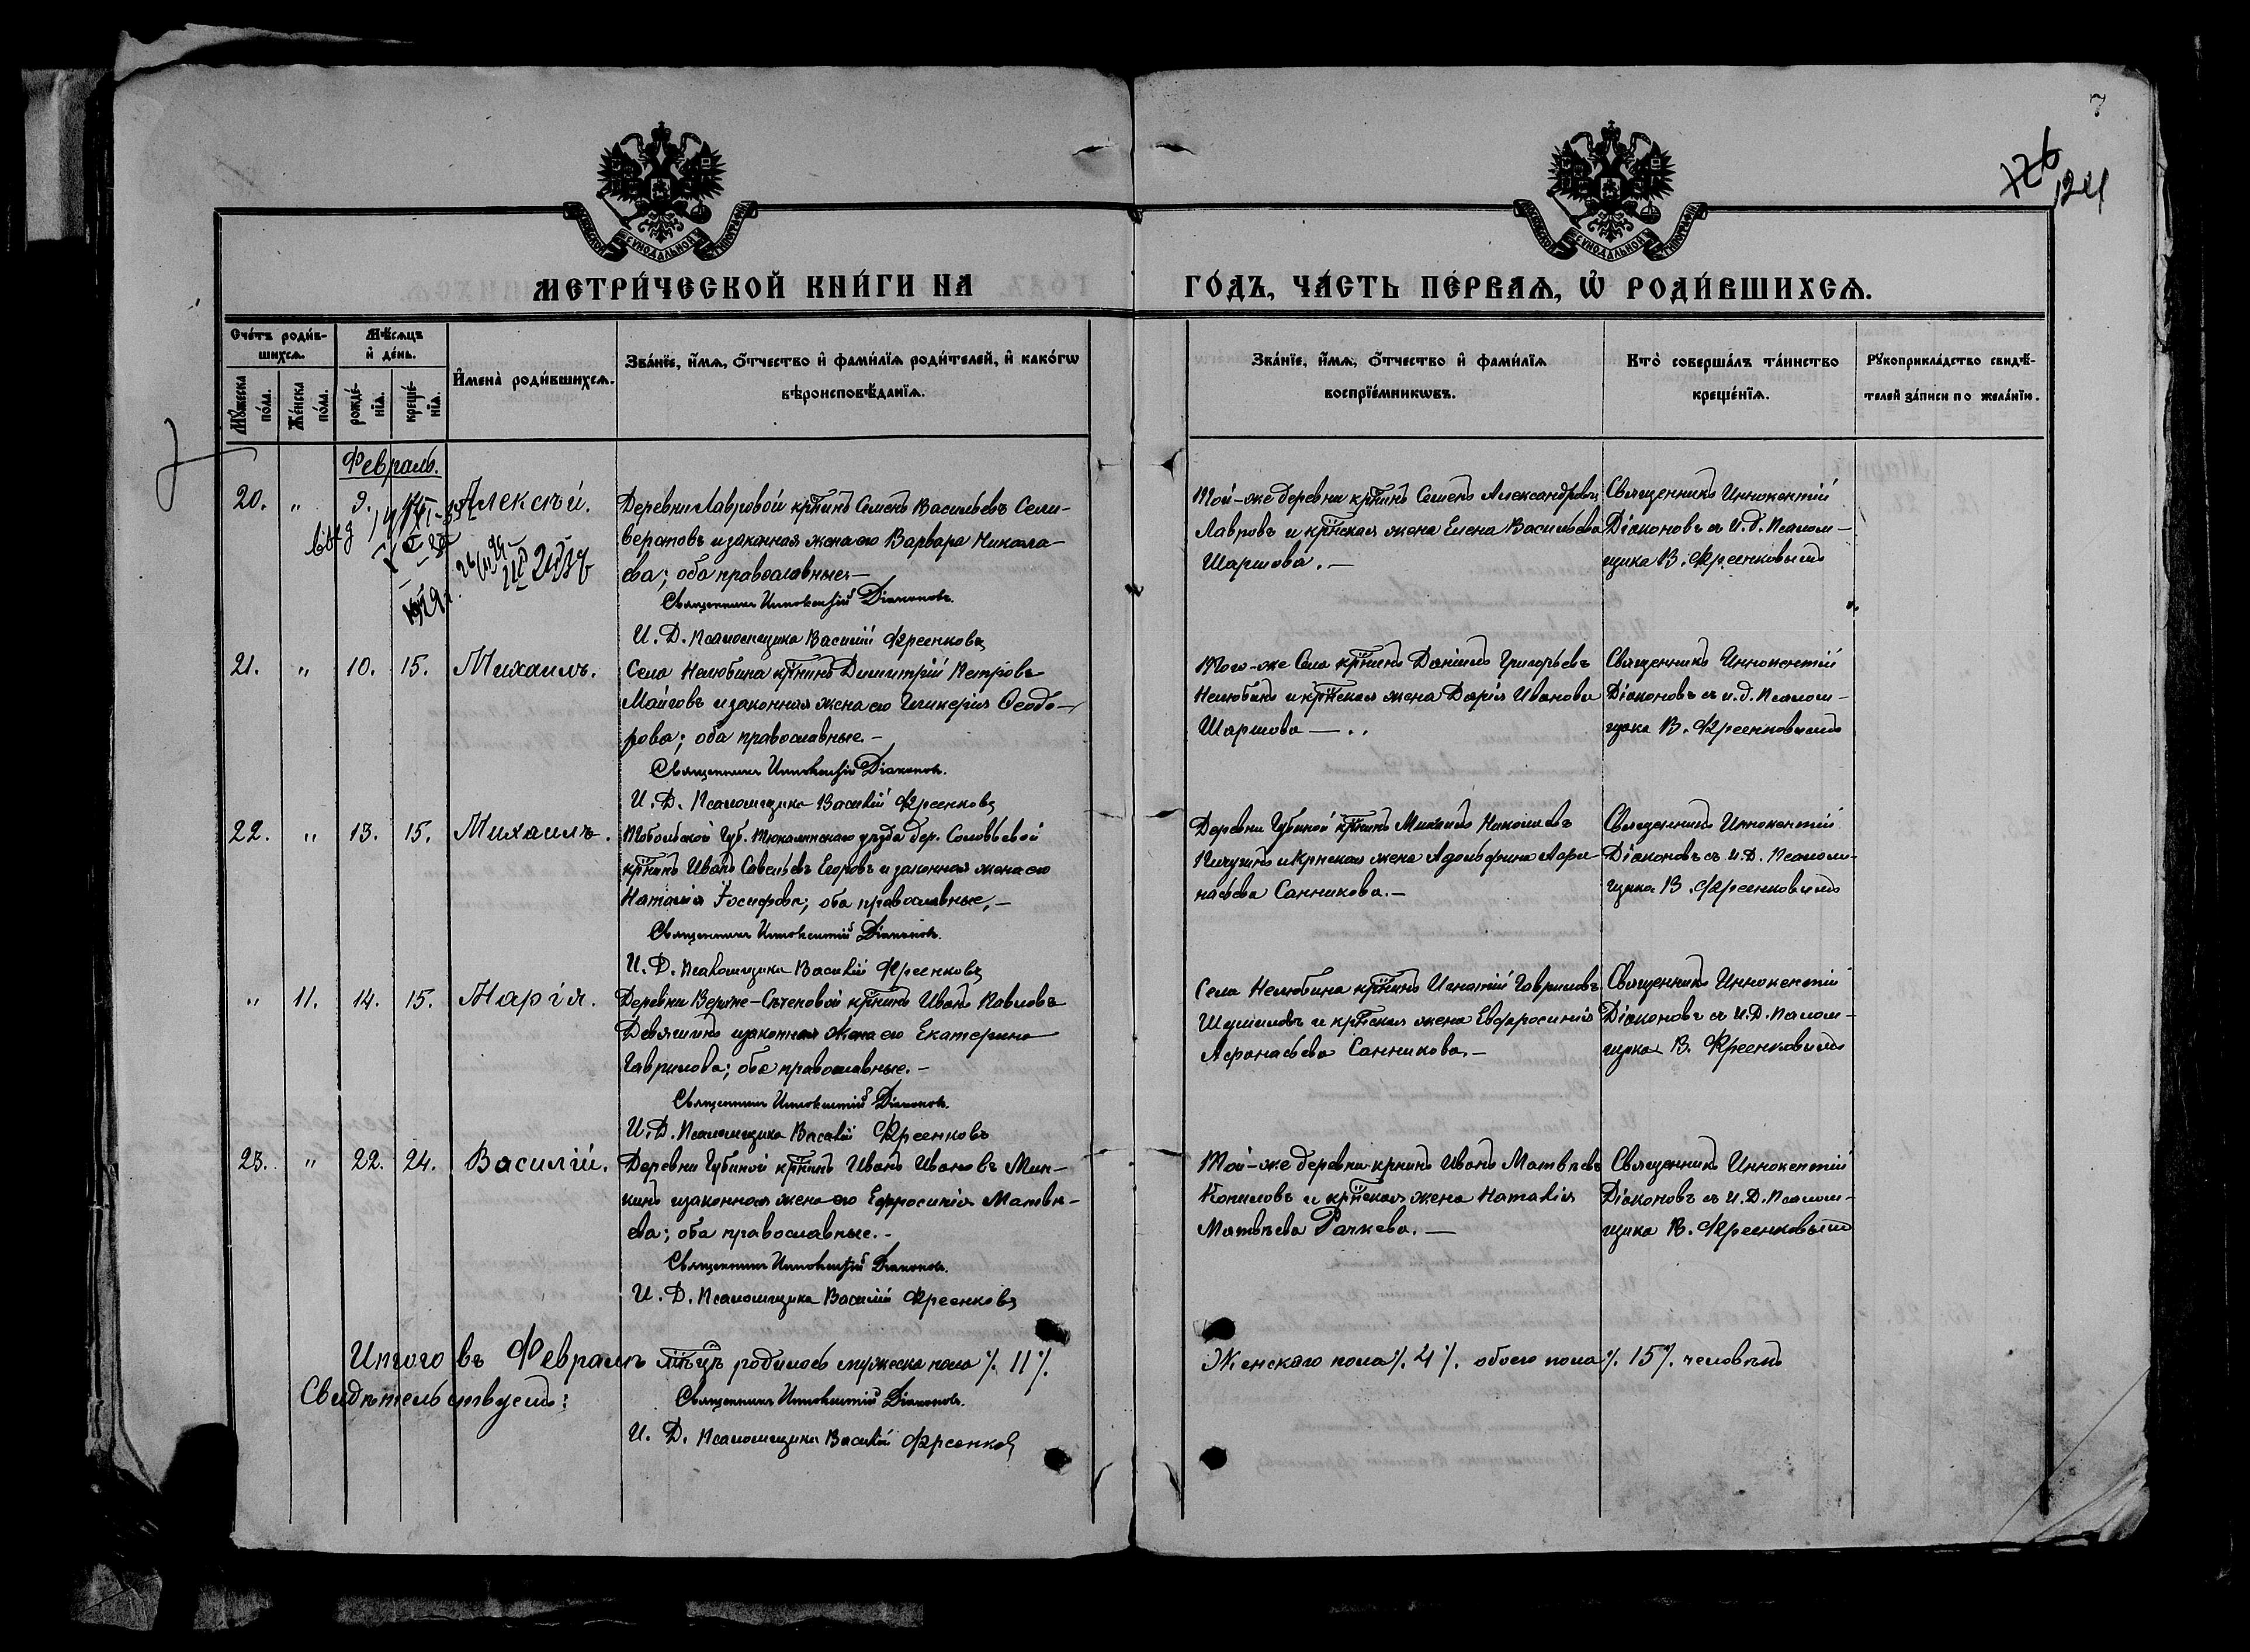 7
126
124
МОСКОВСКОЙ СѴНОДАЛЬНОЙ ТИПОГРАФІИ
МОСКОВСКОЙ СѴНОДАЛЬНОЙ ТИПОГРАФІИ
МЕТРИ́ЧЕСКОЙ КНИ́ГИ НА
ГО́ДЪ, ЧА́СТЬ ПЕ́РВАѦ, Ѡ҆ РОДИ́ВШИХСѦ.
Сче́тъ роди́в-
шихсѧ.
Мѣ́сѧцъ
и҆ де́нь.
И҆мена̀ роди́вшихсѧ.
Зва́нїе, и҆́мѧ, ѻ҆́тчество и҆ фами́лїѧ роди́телей, и҆ како́гѡ
вѣроисповѣ́данїѧ.
Мꙋ́жеска по́ла.
Же́нска по́ла.
рожде́-нїѧ.
креще́-нїѧ.
Зва́нїе, и҆́мѧ, ѻ҆́тчество и҆ фами́лїѧ
воспрїе́мникѡвъ.
Кто̀ соверша́лъ та́инство
креще́нїѧ.
Рꙋкоприкла́дство свидѣ́-
телей за́писи по жела́нїю.
Февраль.
20. " 9. Алексѣй.
Деревни Лавровой кр̅нинъ Семенъ Васильевъ Сели-
верстовъ и законная жена его Варвара Никола-
ева; оба православные.—
Священникъ Иннокентій Діаконовъ.
И. Д. Псаломщика Василій Фреенковъ
Той-же деревни кр̅нинъ Семенъ Александровъ
Лавровъ и кр̅нская жена Елена Васильева
Шаршова.—
Священникъ Иннокентій
Діаконовъ съ И. д. Псалом-
щика В. Фреенковымъ
21. " 10. 15. Михаилъ.
Села Нелюбина кр̅нинъ Димитрій Петровъ
Майговъ и законная жена его Гликерія Ѳеодо-
рова; оба православные.—
Священникъ Иннокентій Діаконовъ.
И. Д. Псаломщика Василій Фреенковъ
Того-же Села кр̅нинъ Даніилъ Григорьевъ
Нелюбинъ и кр̅нская жена Дарія Иванова
Шаршова —..
Священникъ Иннокентій
Діаконовъ съ и. д. Псалом-
щика В. Фреенковымъ
22. " 13. 15. Михаилъ.
Тобольской Губ. Тюкалинскаго уѣзда дер. Соловьевой
кр̅нинъ Иванъ Савельевъ Егоровъ и законная жена его
Наталія Іосифова; оба православные.—
Священникъ Иннокентій Діаконовъ.
И. Д. Псаломщика Василій Фреенковъ
Деревни Губиной кр̅нинъ Михаилъ Николаевъ
Пичугинъ и кр̅нская жена Адольфина Афа-
насьева Санникова.—
Священникъ Иннокентій
Діаконовъ съ И. Д. Псалом-
щика В. Фреенковымъ
" 11. 14. 15. Марія.
Деревни Верхне-Сѣченовой кр̅нинъ Иванъ Павловъ
Девяшинъ и законная жена его Екатерина
Гаврилова; оба православные.—
Священникъ Иннокентій Діаконовъ.
И. Д. Псаломщика Василій Фреенковъ
Села Нелюбина кр̅нинъ Игнатій Гавриловъ
Шушиловъ и кр̅нская жена Евфросинія
Афонасьева Санникова.—
Священникъ Иннокентій
Діаконовъ съ И. Д. Псалом-
щика В. Фреенковымъ
23. " 22. 24. Василій.
Деревни Губиной кр̅нинъ Иванъ Ивановъ Мин-
кинъ и законная жена его Ефросинія Матвѣ-
ева; оба православные.-
Священникъ Иннокентій Діаконовъ.
И. Д. Псаломщика Василій Фреенковъ
Той-же деревни кр̅нинъ Иванъ Матвѣевъ
Копиловъ и кр̅нская жена Наталія
Матвѣева Рачкева.—
Священникъ Иннокентій
Діаконовъ съ И. Д. Псалом-
щика В. Фреенковымъ
Итого въ Февралѣ мѣцѣ родилось мужеска пола ./. 11 ./.
Женскаго пола ./. 4 ./. обоего пола ./. 15 ./. человѣкъ
Свидѣтельствуемъ:
Священникъ Иннокентій Діаконовъ.
И. Д. Псаломщика Василій Фреенковъ